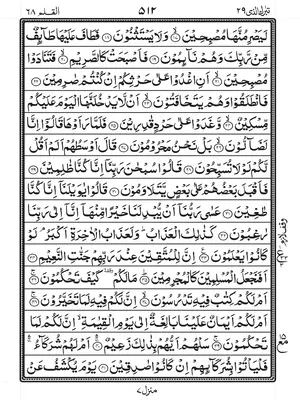 تبٰرك الذی ٢٩ ٥١٢ القلم ٦٨
لَيَصْرِمُنَّهَا مُصْبِحِيْنَ ۝١٧ وَلَا يَسْتَثْنُوْنَ ۝١٨ فَطَافَ عَلَيْهَا طَآئِفٌ
مِّنْ رَّبِّكَ وَهُمْ نَآئِمُوْنَ ۝١٩ فَاَصْبَحَتْ كَالصَّرِيْمِ ۝٢٠ فَتَنَادَوْا
مُصْبِحِيْنَ ۝٢١ اَنِ اغْدُوْا عَلٰى حَرْثِكُمْ اِنْ كُنْتُمْ صٰرِمِيْنَ ۝٢٢
فَانْطَلَقُوْا وَهُمْ يَتَخَافَتُوْنَ ۝٢٣ اَنْ لَّا يَدْخُلَنَّهَا الْيَوْمَ عَلَيْكُمْ
مِّسْكِيْنٌ ۝٢٤ وَّغَدَوْا عَلٰى حَرْدٍ قٰدِرِيْنَ ۝٢٥ فَلَمَّا رَاَوْهَا قَالُوْٓا اِنَّا
لَضَآلُّوْنَ ۝٢٦ بَلْ نَحْنُ مَحْرُوْمُوْنَ ۝٢٧ قَالَ اَوْسَطُهُمْ اَلَمْ اَقُلْ
لَّكُمْ لَوْلَا تُسَبِّحُوْنَ ۝٢٨ قَالُوْا سُبْحٰنَ رَبِّنَآ اِنَّا كُنَّا ظٰلِمِيْنَ ۝٢٩
فَاَقْبَلَ بَعْضُهُمْ عَلٰى بَعْضٍ يَّتَلَاوَمُوْنَ ۝٣٠ قَالُوْا يٰوَيْلَنَآ اِنَّا كُنَّا
طٰغِيْنَ ۝٣١ عَسٰى رَبُّنَآ اَنْ يُّبْدِلَنَا خَيْرًا مِّنْهَآ اِنَّآ اِلٰى رَبِّنَا
رٰغِبُوْنَ ۝٣٢ كَذٰلِكَ الْعَذَابُ وَلَعَذَابُ الْاٰخِرَةِ اَكْبَرُ لَوْ
كَانُوْا يَعْلَمُوْنَ ۝٣٣ اِنَّ لِلْمُتَّقِيْنَ عِنْدَ رَبِّهِمْ جَنّٰتِ النَّعِيْمِ ۝٣٤
اَفَنَجْعَلُ الْمُسْلِمِيْنَ كَالْمُجْرِمِيْنَ ۝٣٥ مَا لَكُمْ كَيْفَ تَحْكُمُوْنَ ۝٣٦
اَمْ لَكُمْ كِتٰبٌ فِيْهِ تَدْرُسُوْنَ ۝٣٧ اِنَّ لَكُمْ فِيْهِ لَمَا تَخَيَّرُوْنَ ۝٣٨
اَمْ لَكُمْ اَيْمَانٌ عَلَيْنَا بَالِغَةٌ اِلٰى يَوْمِ الْقِيٰمَةِ اِنَّ لَكُمْ لَمَا
تَحْكُمُوْنَ ۝٣٩ سَلْهُمْ اَيُّهُمْ بِذٰلِكَ زَعِيْمٌ ۝٤٠ اَمْ لَهُمْ شُرَكَآءُ
فَلْيَاْتُوْا بِشُرَكَآئِهِمْ اِنْ كَانُوْا صٰدِقِيْنَ ۝٤١ يَوْمَ يُكْشَفُ عَنْ
منزل ٧